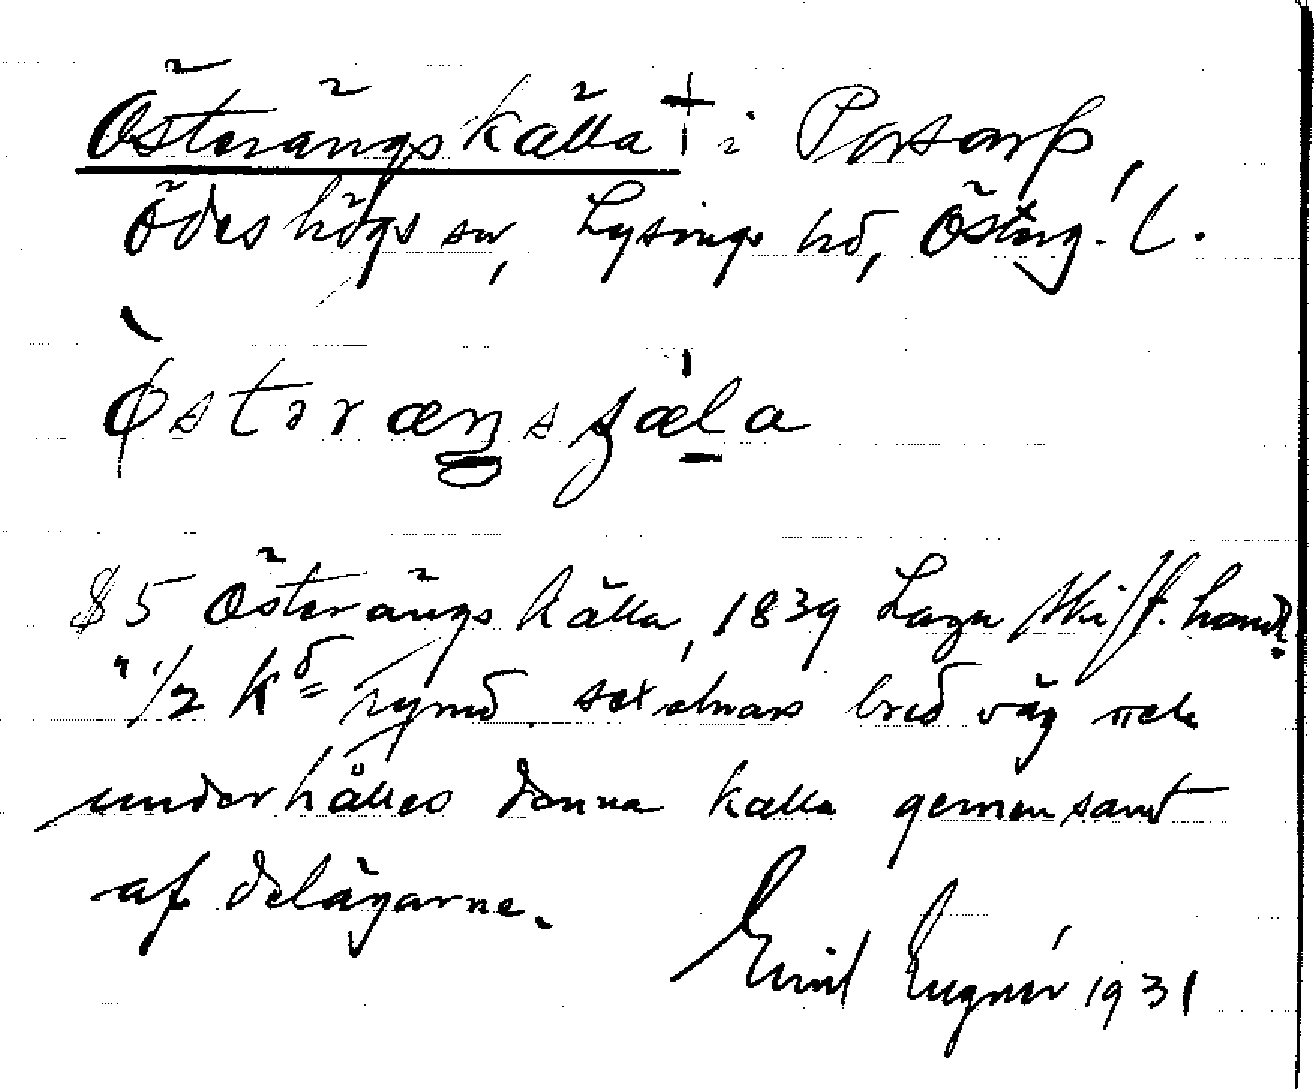 Österängskälla † i Porsarp,
Ödeshögs sn, Lysings hd, Österg. l.
Østərænsʃæla
§5 Österängs källa, 1839 Laga skift. handl.
" 1/2 Kd rymd sex alnars bred väg och
underhålles denna källa gemensamt
af delägarne.
Emil 1931